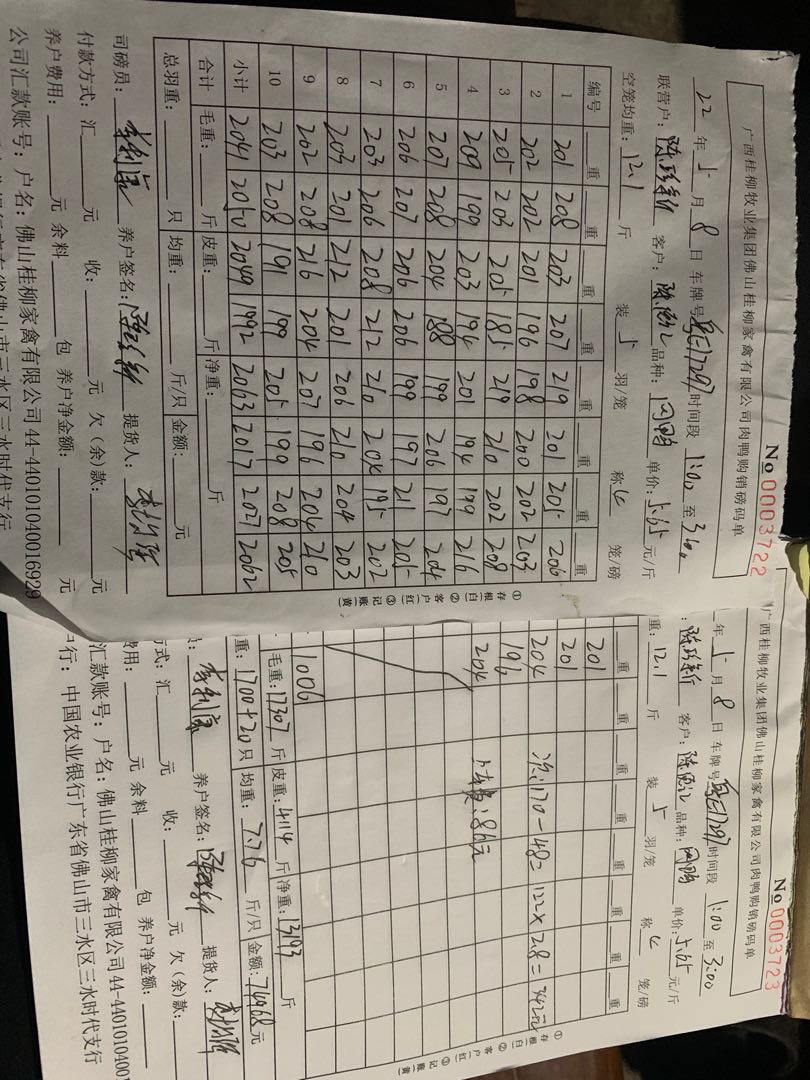 No 0003722
广西桂柳牧业集团佛山桂柳家禽有限公司肉鸭购销磅码单
22 年 5 月 8 日 车牌号 时间段 1:00 至 3:00
联营户: 客户: 品种: 单价: 5.65 元/斤
空笼均重: 12.1 斤 装 5 羽/笼 称 4 笼/磅
编号 重 重 重 重 重 重 重 重
1 201 208 203 207 219 201 205 206
2 202 202 201 196 198 200 202 203
3 205 203 205 185 219 210 202 208
4 209 199 203 194 201 194 199 216
5 207 208 204 188 199 206 197 204
6 206 207 206 206 199 197 211 205
7 203 206 208 212 210 204 195 202
8 203 201 212 201 206 210 204 203
9 202 208 216 204 207 196 204 210
10 203 208 191 199 205 199 208 205
小计 2041 2050 2049 1992 2063 2017 2027 2062
合计 毛重: 斤 皮重: 斤 净重: 斤
总羽重: 只 均重: 斤/只 金额: 元
司磅员: 养户签名: 提货人:
付款方式: 汇 元 收: 元 欠(余)款: 元
养户费用: 元 余料 包 养户净金额: 元
公司汇款账号: 户名: 佛山桂柳家禽有限公司 44-440101040016929
①存根(白) ②客户(红) ③记账(黄)
No 0003723
广西桂柳牧业集团佛山桂柳家禽有限公司肉鸭购销磅码单
年 5 月 8 日 车牌号 时间段 1:00 至 3:00
客户: 品种: 单价: 5.65 元/斤
重: 12.1 斤 装 5 羽/笼 称 4 笼/磅
重 重 重 重 重 重 重 重
201
201
204 170-48=122×2.8=342元
196
204 上车费:86元
1006
毛重: 17307 斤 皮重: 4114 斤 净重: 13193 斤
重: 1700+20 只 均重: 7.76 斤/只 金额: 74968 元
养户签名: 提货人:
方式: 汇 元 收: 元 欠(余)款:
费用: 元 余料 包 养户净金额:
汇款账号: 户名: 佛山桂柳家禽有限公司 44-44010104001
行: 中国农业银行广东省佛山市三水区三水时代支行
①存根(白) ②客户(红) ③记账(黄)